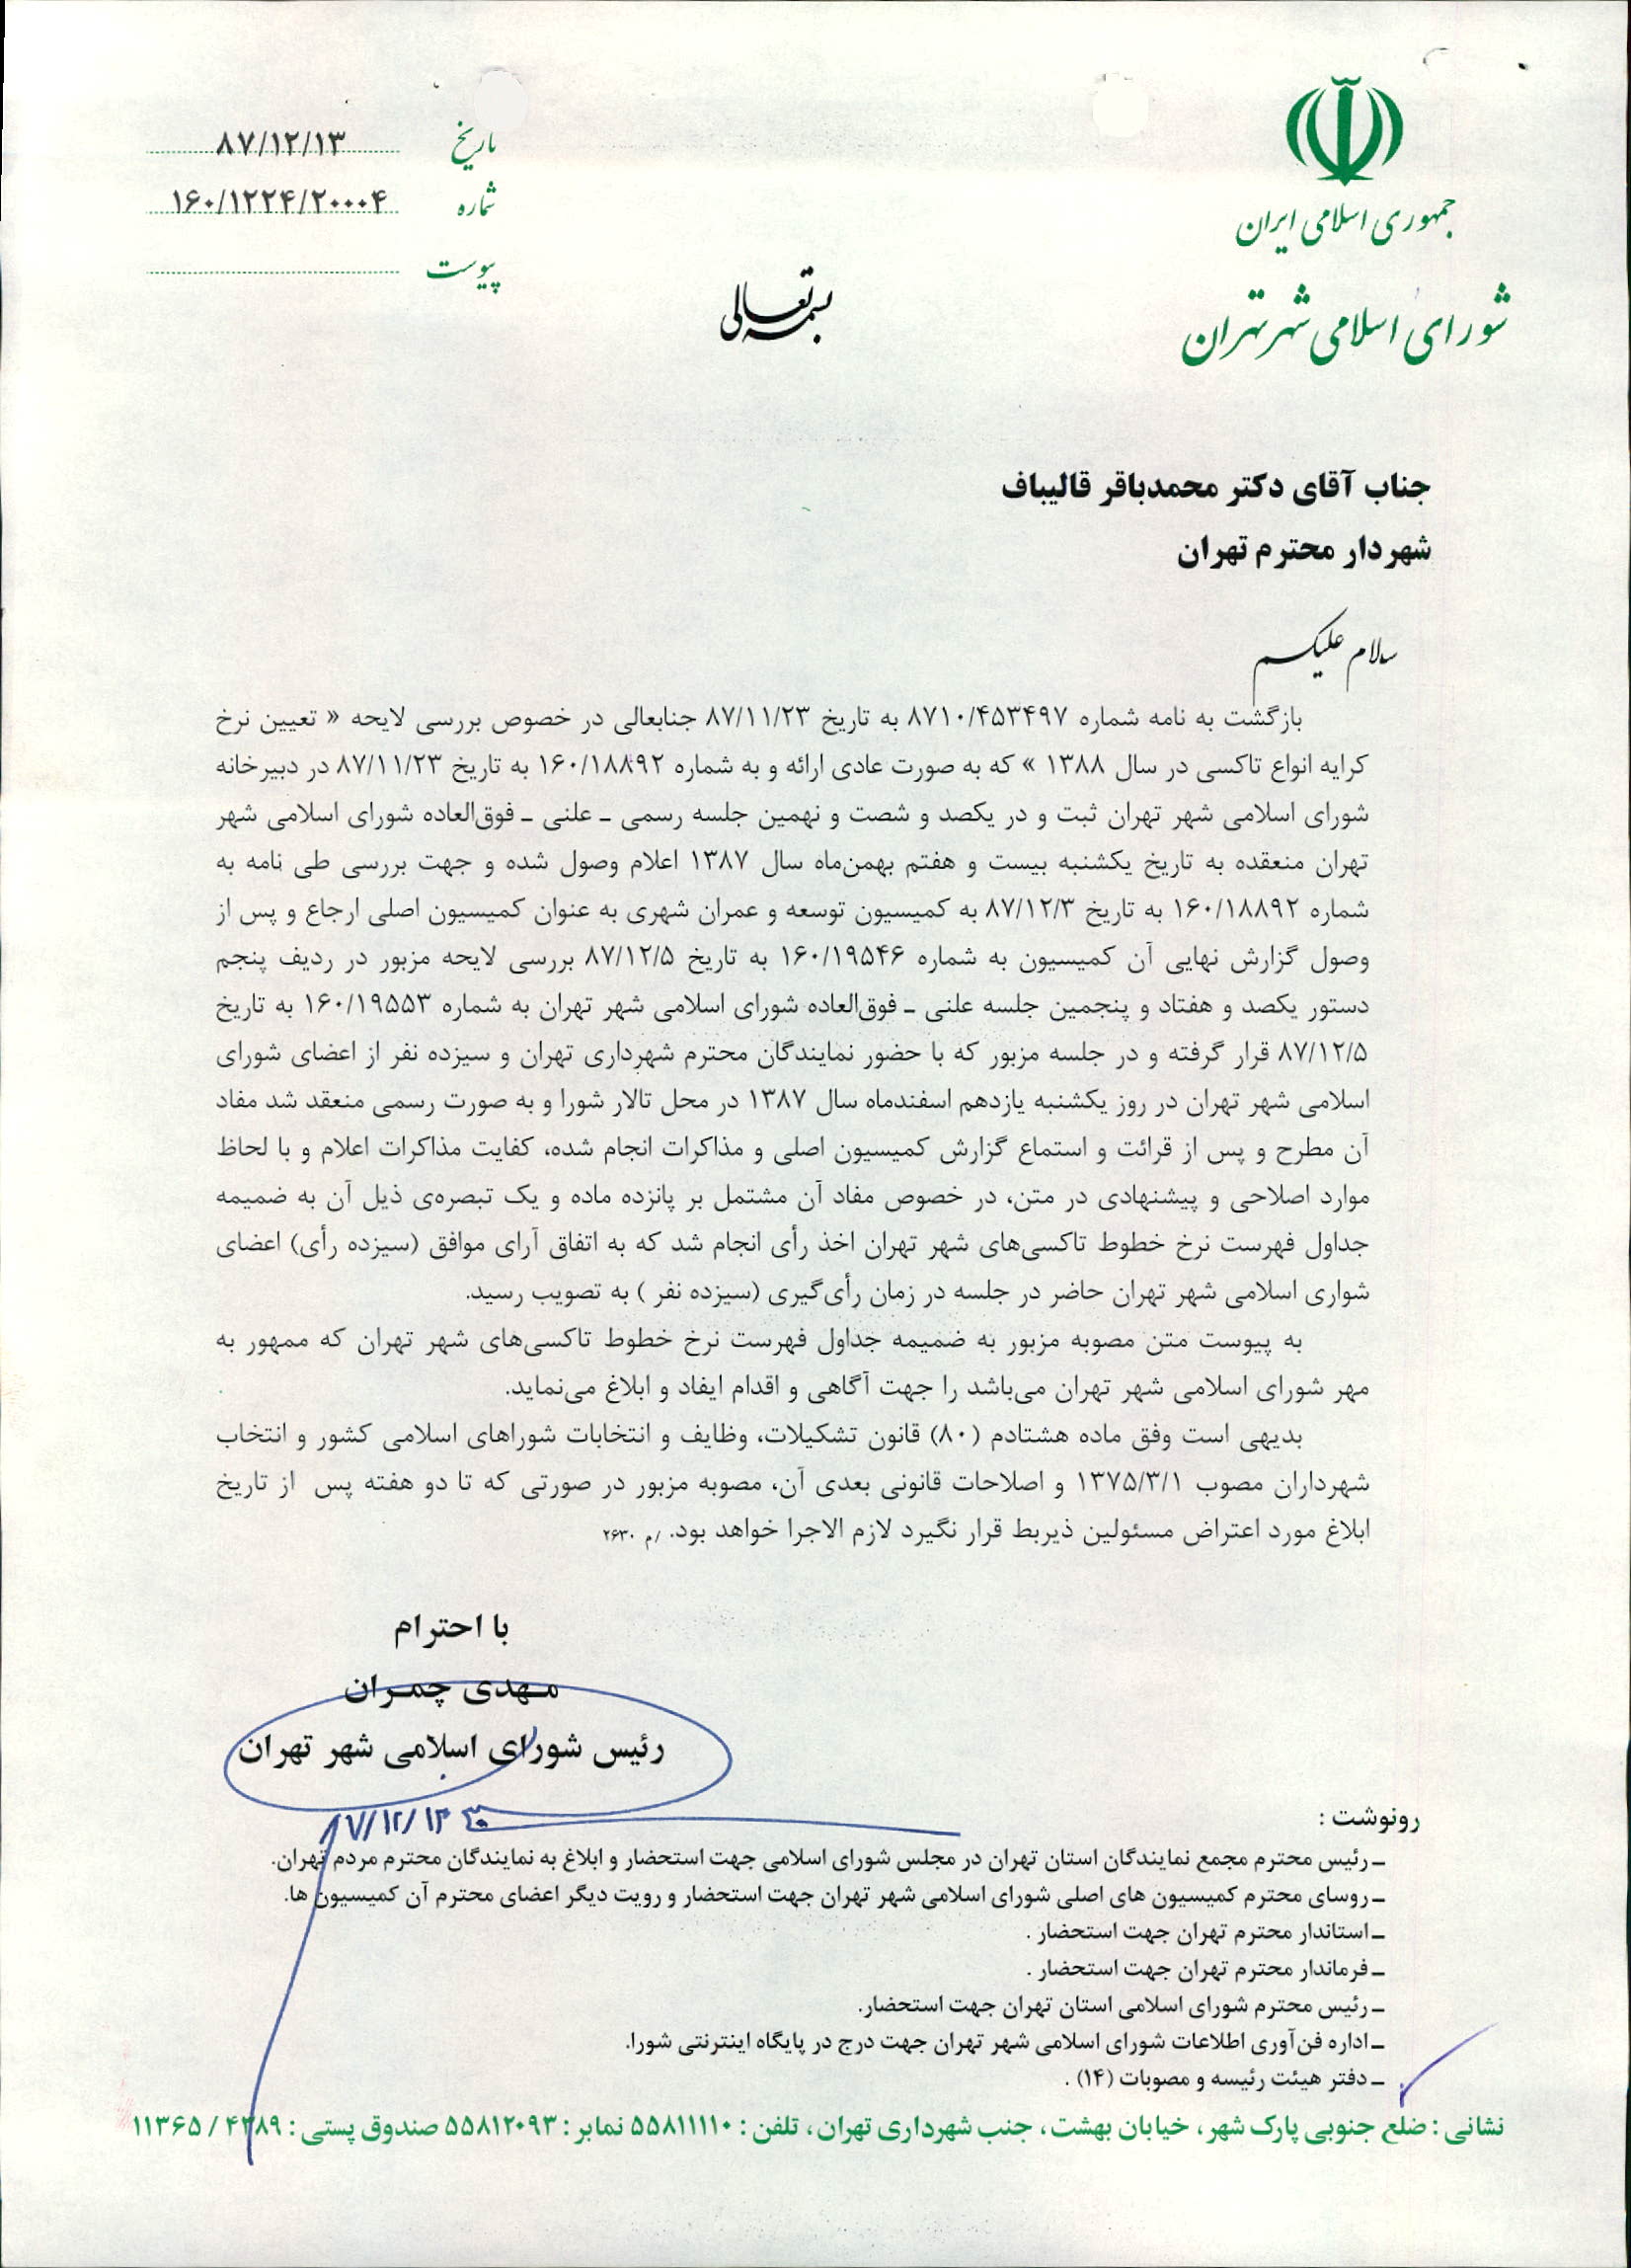 جمهوری اسلامی ایران
شورای اسلامی شهر تهران
تاریخ ۸۷/۱۲/۱۳
شماره ۱۶۰/۱۲۲۴/۲۰۰۰۴
پیوست
بسمه تعالی
جناب آقای دکتر محمدباقر قالیباف
شهردار محترم تهران
سلام علیکم
بازگشت به نامه شماره ۸۷۱۰/۴۵۳۴۹۷ به تاریخ ۸۷/۱۱/۲۳ جنابعالی در خصوص بررسی لایحه « تعیین نرخ
کرایه انواع تاکسی در سال ۱۳۸۸ » که به صورت عادی ارائه و به شماره ۱۶۰/۱۸۸۹۲ به تاریخ ۸۷/۱۱/۲۳ در دبیرخانه
شورای اسلامی شهر تهران ثبت و در یکصد و شصت و نهمین جلسه رسمی ـ علنی ـ فوق‌العاده شورای اسلامی شهر
تهران منعقده به تاریخ یکشنبه بیست و هفتم بهمن‌ماه سال ۱۳۸۷ اعلام وصول شده و جهت بررسی طی نامه به
شماره ۱۶۰/۱۸۸۹۲ به تاریخ ۸۷/۱۲/۳ به کمیسیون توسعه و عمران شهری به عنوان کمیسیون اصلی ارجاع و پس از
وصول گزارش نهایی آن کمیسیون به شماره ۱۶۰/۱۹۵۴۶ به تاریخ ۸۷/۱۲/۵ بررسی لایحه مزبور در ردیف پنجم
دستور یکصد و هفتاد و پنجمین جلسه علنی ـ فوق‌العاده شورای اسلامی شهر تهران به شماره ۱۶۰/۱۹۵۵۳ به تاریخ
۸۷/۱۲/۵ قرار گرفته و در جلسه مزبور که با حضور نمایندگان محترم شهرداری تهران و سیزده نفر از اعضای شورای
اسلامی شهر تهران در روز یکشنبه یازدهم اسفندماه سال ۱۳۸۷ در محل تالار شورا و به صورت رسمی منعقد شد مفاد
آن مطرح و پس از قرائت و استماع گزارش کمیسیون اصلی و مذاکرات انجام شده، کفایت مذاکرات اعلام و با لحاظ
موارد اصلاحی و پیشنهادی در متن، در خصوص مفاد آن مشتمل بر پانزده ماده و یک تبصره‌ی ذیل آن به ضمیمه
جداول فهرست نرخ خطوط تاکسی‌های شهر تهران اخذ رأی انجام شد که به اتفاق آرای موافق (سیزده رأی) اعضای
شواری اسلامی شهر تهران حاضر در جلسه در زمان رأی‌گیری (سیزده نفر ) به تصویب رسید.
به پیوست متن مصوبه مزبور به ضمیمه جداول فهرست نرخ خطوط تاکسی‌های شهر تهران که ممهور به
مهر شورای اسلامی شهر تهران می‌باشد را جهت آگاهی و اقدام ایفاد و ابلاغ می‌نماید.
بدیهی است وفق ماده هشتادم (۸۰) قانون تشکیلات، وظایف و انتخابات شوراهای اسلامی کشور و انتخاب
شهرداران مصوب ۱۳۷۵/۳/۱ و اصلاحات قانونی بعدی آن، مصوبه مزبور در صورتی که تا دو هفته پس از تاریخ
ابلاغ مورد اعتراض مسئولین ذیربط قرار نگیرد لازم الاجرا خواهد بود. /م ۲۶۳۰
با احترام
مهدی چمران
رئیس شورای اسلامی شهر تهران
۸۷/۱۲/۱۳
رونوشت :
ـ رئیس محترم مجمع نمایندگان استان تهران در مجلس شورای اسلامی جهت استحضار و ابلاغ به نمایندگان محترم مردم تهران.
ـ روسای محترم کمیسیون های اصلی شورای اسلامی شهر تهران جهت استحضار و رویت دیگر اعضای محترم آن کمیسیون ها.
ـ استاندار محترم تهران جهت استحضار .
ـ فرماندار محترم تهران جهت استحضار .
ـ رئیس محترم شورای اسلامی استان تهران جهت استحضار.
ـ اداره فن‌آوری اطلاعات شورای اسلامی شهر تهران جهت درج در پایگاه اینترنتی شورا.
ـ دفتر هیئت رئیسه و مصوبات (۱۴) .
نشانی : ضلع جنوبی پارک شهر ، خیابان بهشت ، جنب شهرداری تهران ، تلفن : ۵۵۸۱۱۱۱۰ نمابر : ۵۵۸۱۲۰۹۳ صندوق پستی : ۴۳۸۹ / ۱۱۳۶۵